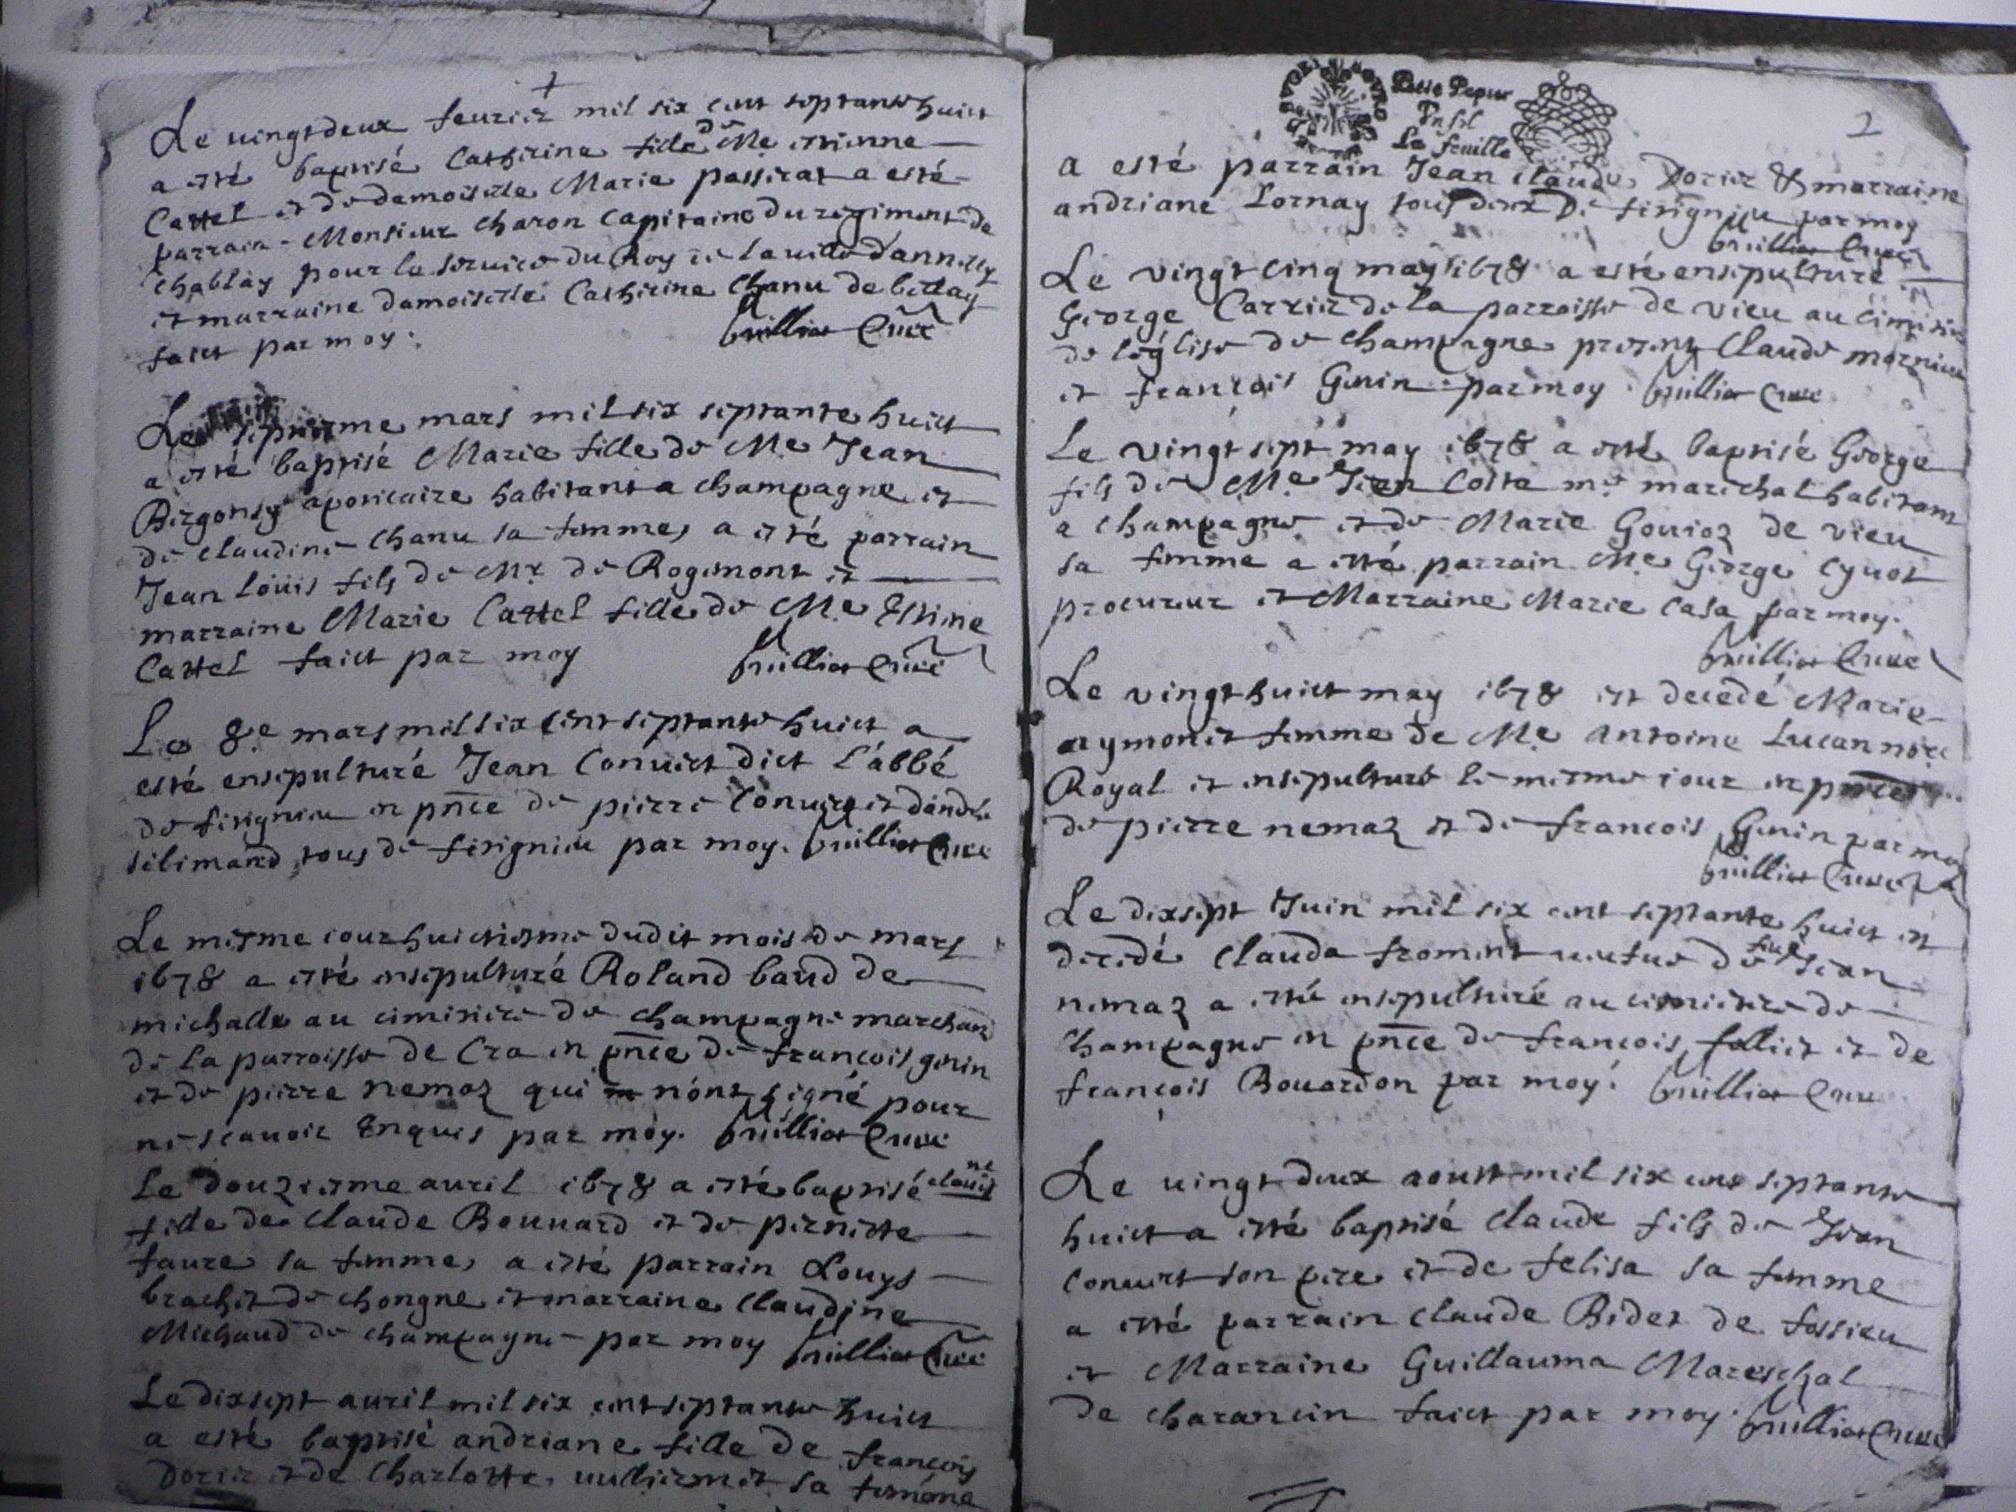 Le vingtdeux feurier mil six cent septante huict
a esté baptisé Catherine fille de Me estienne
Cattel et de damoiselle Marie passerat a esté
parrain Monsieur Charon Capitaine du regiment de
Chablay pour le seruice du Roy de la ville d'annessy
et marraine damoiselle Catherine Chanu de bellay
faict par moy. Brillat Curé
Le septiesme mars mil six septante huict
a esté baptisé Marie fille de Me Jean
apoticaire habitant a champagne et
de claudine Chanu sa femme, a esté parrain
Jean Louis fils de Mr de Rogemont et
marraine Marie Cattel fille de Me Estiene
Cattel faict par moy Brillat Curé
Le 8e mars mil six cent septante huict a
esté ensepulturé Jean Conuert dict l'abbé
de firignieu en pnce de pierre Conuert et d'andré
silimand tous de firignieu par moy. Brillat Curé
Le mesme iour huictiesme dudit mois de mars
1678 a esté ensepulturé Roland baud de
michalle au cimetiere de champagne marchand
de la parroisse de Cra en pnce de françois genin
et de pierre nemoz qui n'ont signé pour
ne scauoir Enquis par moy. Brillat Curé
Le douziesme auril 1678 a esté baptisé
fille de claude Bonnard et de pernette
faure sa femme, a esté parrain Louys
brachet de chongne et marraine Claudine
Michaud de champagne par moy Brillat Curé
Le dixsept auril mil six cent septante huict
a esté baptisé andriane fille de françois
Dorier et de Charlotte vulliermet sa femme
Petit Papier
La feuille
2
a esté parrain Jean claude Dorier & marraine
andriane Lornay tous deux de firignieu par moy
Brillat Curé
Le vingt cinq may 1678 a esté ensepulturé
George Carrier de la parroisse de vieu au cimetiere
de l'église de champagne present Claude mornieu
et françois Genin par moy. Brillat Curé
Le vingt sept may 1678 a esté baptisé George
fils de Me Jean Coste me marechal habitant
a champagne et de Marie Goujoz de vieu
sa femme a esté parrain Me George Cyuot
procureur et Marraine Marie Casa par moy.
Brillat Curé
Le vingt huict may 1678 est decedé Marie
aymonet femme de Me Antoine Lucan nore
Royal et ensepulturé le mesme iour en pnce
de pierre nemaz et de francois Genin par moy
Brillat Curé
Le dixsept Juin mil six cent septante huict est
decedé Clauda froment veufue de feu Jean
nemaz a esté ensepulturé au cimetiere de
Champagne en pnce de francois folliet et de
françois Bouardon par moy. Brillat Curé
Le uingt deux aoust mil six cent septante
huict a esté baptisé Claude fils de Jean
Conuert son pere et de felisa sa femme
a esté parrain Claude Bidet de fossieu
et Marraine Guillauma Mareschal
de charancin faict par moy. Brillat Curé